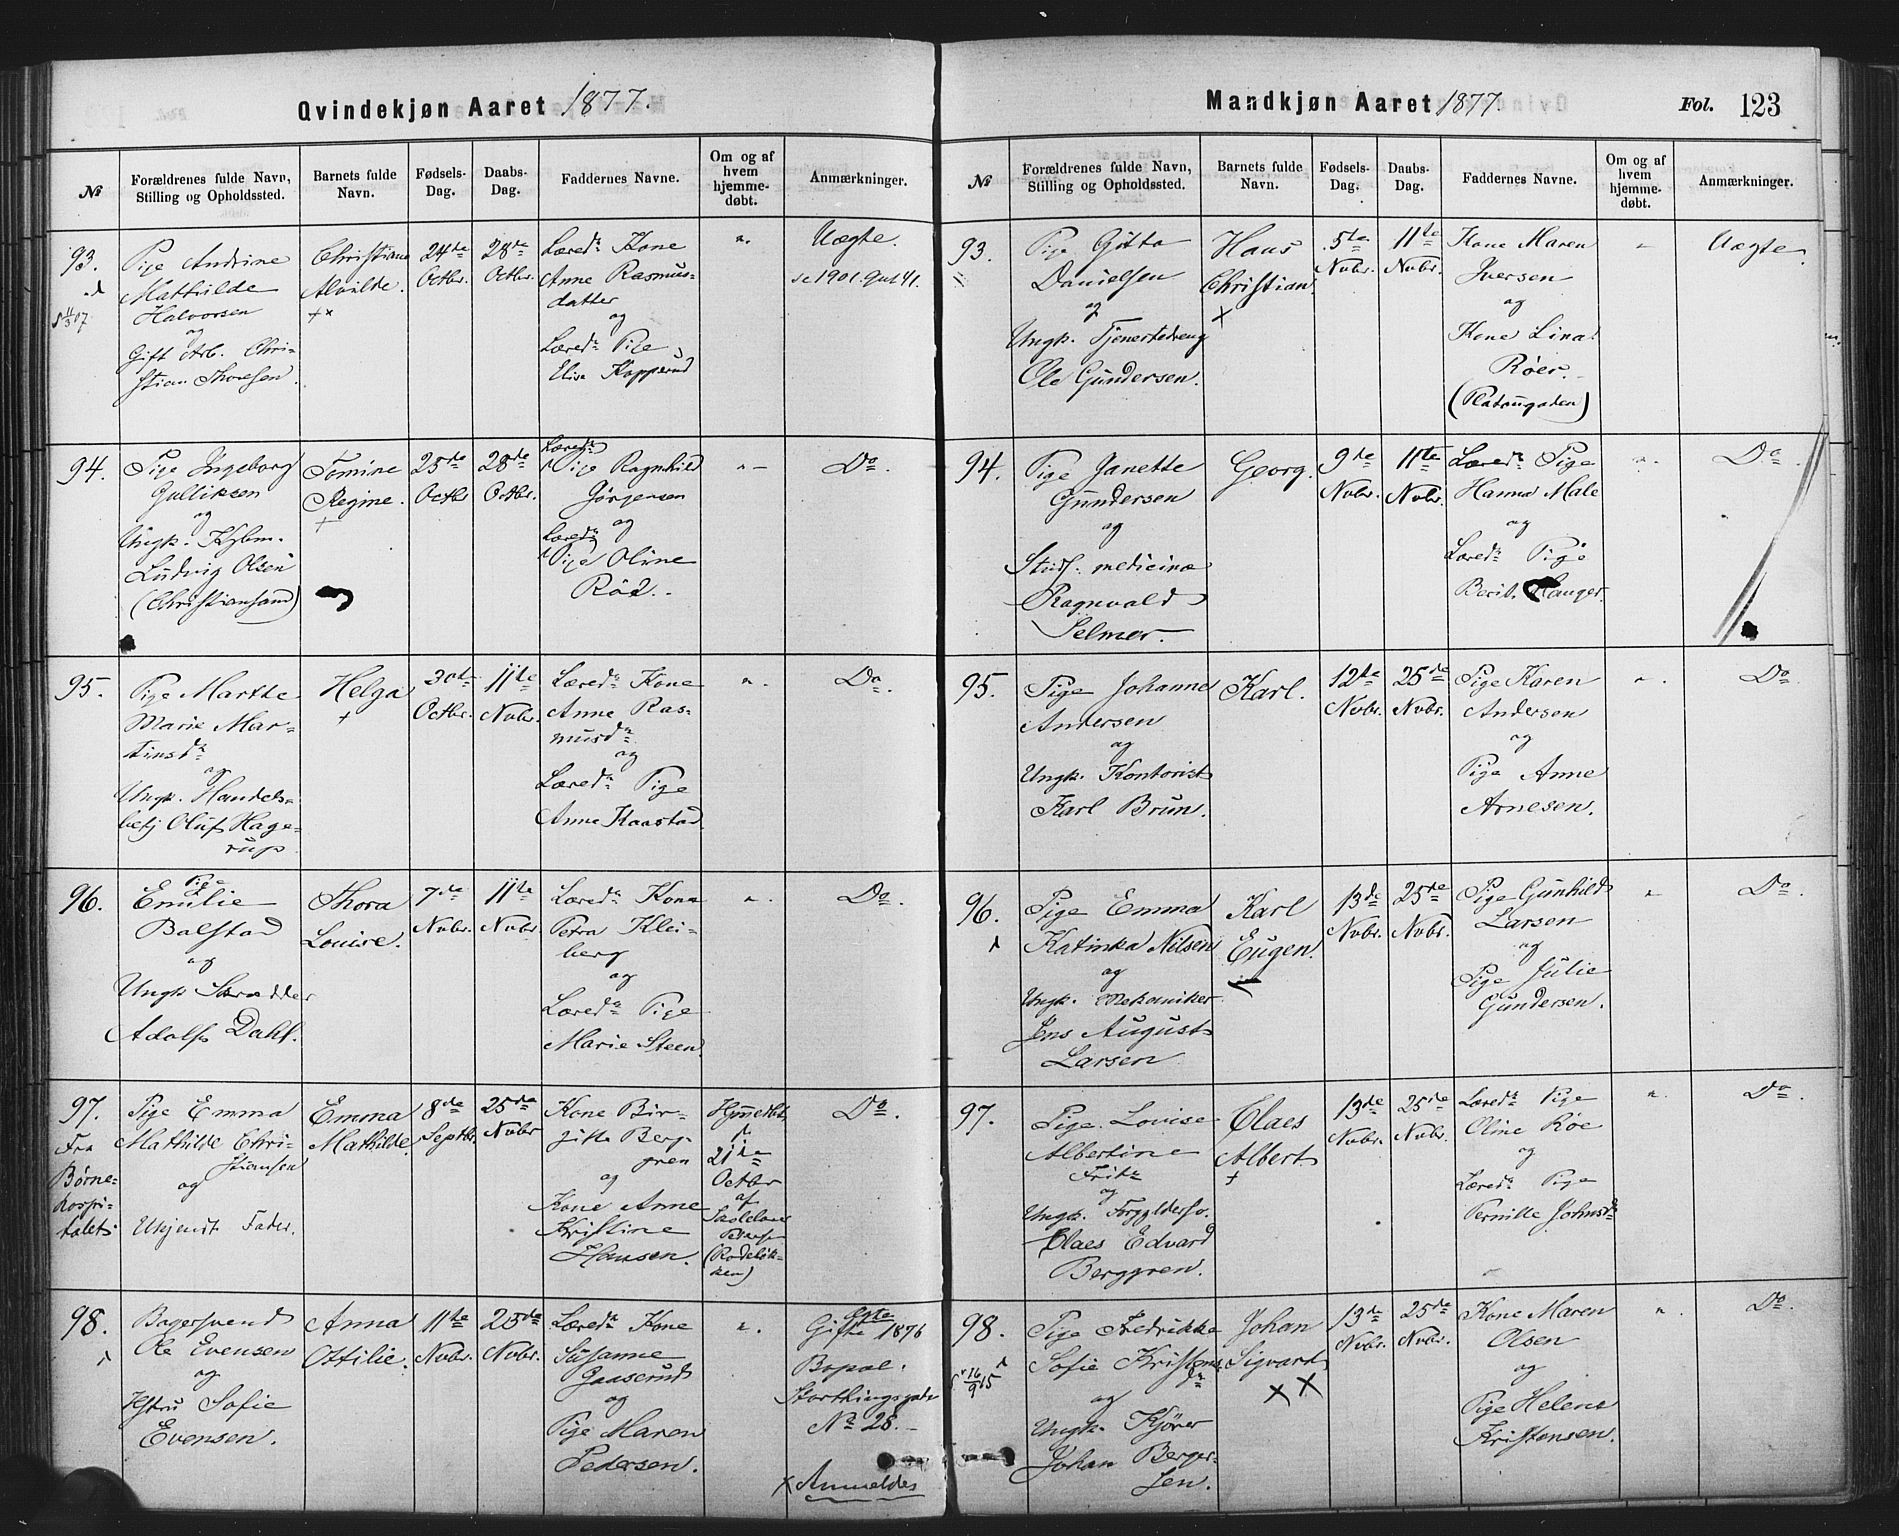 Qvindekjøn Aaret 1877.
№
Forældrenes fulde Navn, Stilling og Opholdssted.
Barnets fulde Navn.
Fødsels-Dag.
Daabs-Dag.
Faddernes Navne.
Om og af hvem hjemme-døbt.
Anmærkninger.
93.
Pige Andrine
Mathilde
Halvorsen
og
Gift Arb. Chri-
stian Thoresen.
Christiane
Alvilde.
24de
Octbr.
28de
Octbr.
Læred. Kone
Anne Rasmus-
datter
og
Læred. Pige
Elise Kopperud
"
Uægte.
94.
Pige Ingeborg
Gulliksen
og
Ungk. Kybm.
Ludvig Olsen
(Christiansand)
Tomine
Regine.
25de
Octbr
28de
Octbr.
Læred.
Pige Ragnhild
Jörgensen
og
Læred.
Pige Oline
Röd.
"
Do.
95.
Pige Marthe
Marie Mar-
tinsdr
og
Ungk. Handels-
betj Oluf Hage-
rup.
Helga
30te
Octbr.
11te
Nvbr.
Læred. Kone
Anne Ras-
musdr
og
Læred. Pige
Anne Kaastad.
"
Do.
96.
Pige
Emilie
Balstad
og
Ungk Skrædder
Adolf Dahl.
Thora
Louise.
7de
Nvbr.
11te
Nvbr.
Læred. Kone
Petra Klei-
berg
og
Læred. Pige
Marie Steen.
"
Do.
97.
Fra
Børne-
hospi-
talet.
Pige Emma
Mathilde Chri-
stiansen
og
Ukjendt Fader.
Emma
Mathilde.
8de
Septbr.
25de
Nvbr
Kone Bir-
gitte Berg-
gren
og
Kone Anne
Kristine
Hansen.
21de
Octbr
af
(Rodeløk-
ken)
Do.
98.
Bagersvend
Ole Evensen
og
Hstru Sofie
Evensen.
Anna
Ottilie.
11te
Nvbr.
25de
Nvbr.
Læred. Kone
Susanne
Gaaserud
og
Pige Maren
Pedersen.
"
Ægte
Gifte 1876
Bopæl.
Storthingsgade
No 28.
x Anmeldes
Mandkjøn Aaret 1877.
Fol. 123
№
Forældrenes fulde Navn, Stilling og Opholdssted.
Barnets fulde Navn.
Fødsels-Dag.
Daabs-Dag.
Faddernes Navne.
Om og af hvem hjemme-døbt.
Anmærkninger.
93.
Pige Gitta
Danielsen
og
Ungk. Tjenestedreng
Ole Gundersen.
Hans
Christian.
5te
Nvbr.
11te
Nvbr.
Kone Maren
Iversen
og
Kone Lina
Röer.
(Platougaden)
"
Uægte
94.
Pige Janette
Gundersen
og
Stud. medicinæ
Ragnvald
Selmer.
Georg.
9de
Nvbr.
11te
Nvbr.
Læred. Pige
Hanna Male
og
Læred. Pige
Berit Hauger.
"
Do.
95.
Pige Johanne
Andersen
og
Ungk. Kontorist
Karl Brun.
Karl.
12te
Nvbr.
25de
Nvbr.
Pige Karen
Andersen
og
Pige Anne
Arnesen.
"
Do.
96.
Pige Emma
Katinka Nilsen
og
Ungk. Mekaniker
Jens August
Larsen
Karl
Eugen.
13de
Nvbr.
25de
Nvbr.
Pige Gunhild
Larsen
og
Pige Julie
Gundersen.
"
Do.
97.
Pige Lovise
Albertine
Fritz
og
Ungk. Forgyldersv.
Claes Edvard
Berggren.
Claes
Albert
13de
Nvbr.
25de
Nvbr.
Læred. Pige
Oline Röe
og
Læred. Pige
Pernille Johnsdr
"
Do.
98.
Pige Fredrikke
Sofie Kristens-
dr
og
Ungk. Kjører
Johan Berger-
sen.
Johan
Sigvart
13de
Nvbr.
25de
Nvbr.
Kone Maren
Olsen
og
Pige Helene
Kristensen.
"
Do.